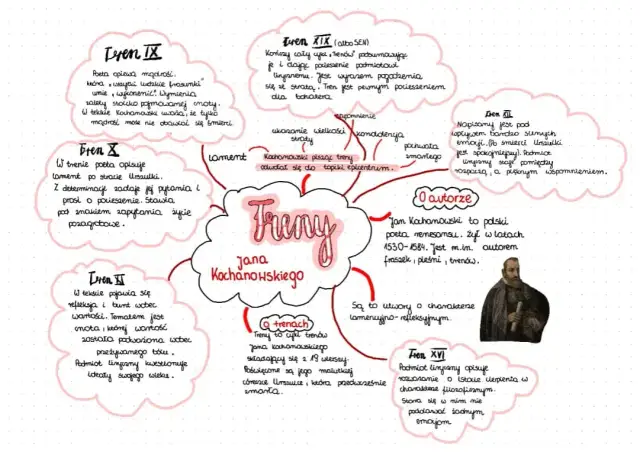 Tren IX
Poeta opiewa mądrość,
która „wszytki ludzkie frasunki"
umie „wykorzenić". Wymienia
zalety stoicko pojmowanej cnoty.
W tekście Kochanowski uważa, że tylko
mądrość może nie obawiać się śmierci.
Tren XIX (albo SEN)
Kończy cały cykl „Trenów" podsumowując
je i dając pocieszenie podmiotowi
lirycznemu. Jest wyrazem pogodzenia
się ze stratą. Tren jest pewnym pocieszeniem
dla bohatera.
Tren XII
Napisany jest pod
wpływem bardzo silnych
emocji. (Po śmierci Urszulki
jest spokojniejszy). Podmiot
liryczny stoi pomiędzy
rozpaczą, a pięknym wspomnieniem.
Tren X
W trenie poeta opisuje
lament po stracie Urszulki.
Z determinacją zadaje jej pytania i
prosi o pocieszenie. Stawia
pod znakiem zapytania życie
pozagrobowe.
lament
ukazanie wielkości
straty
napomnienie
kondolencja
pochwała
zmarłego
Kochanowski pisząc treny
odwołał się do topiki epicentrum.
Treny
Jana
Kochanowskiego
O autorze
Jan Kochanowski to polski
poeta renesansu. Żył w latach
1530-1584. Jest m.in. autorem
fraszek, pieśni, trenów.
Tren XI
W tekście pojawia się
refleksja i bunt wobec
wartości. Tematem jest
cnota, której wartość
została podważona wobec
przeżywanego bólu.
Podmiot liryczny kwestionuje
ideały swojego wieku.
O trenach
Treny to cykl trenów
Jana Kochanowskiego
składający się z 19 wierszy.
Poświęcone są jego malutkiej
córeczce Urszulce, która przedwcześnie
zmarła.
Są to utwory o charakterze
lamencyjno-refleksyjnym.
Tren XVI
Podmiot liryczny opisuje
rozważanie o istocie cierpienia w
charakterze filozoficznym.
Stara się w nim nie
podołować żadnym
emocjom.